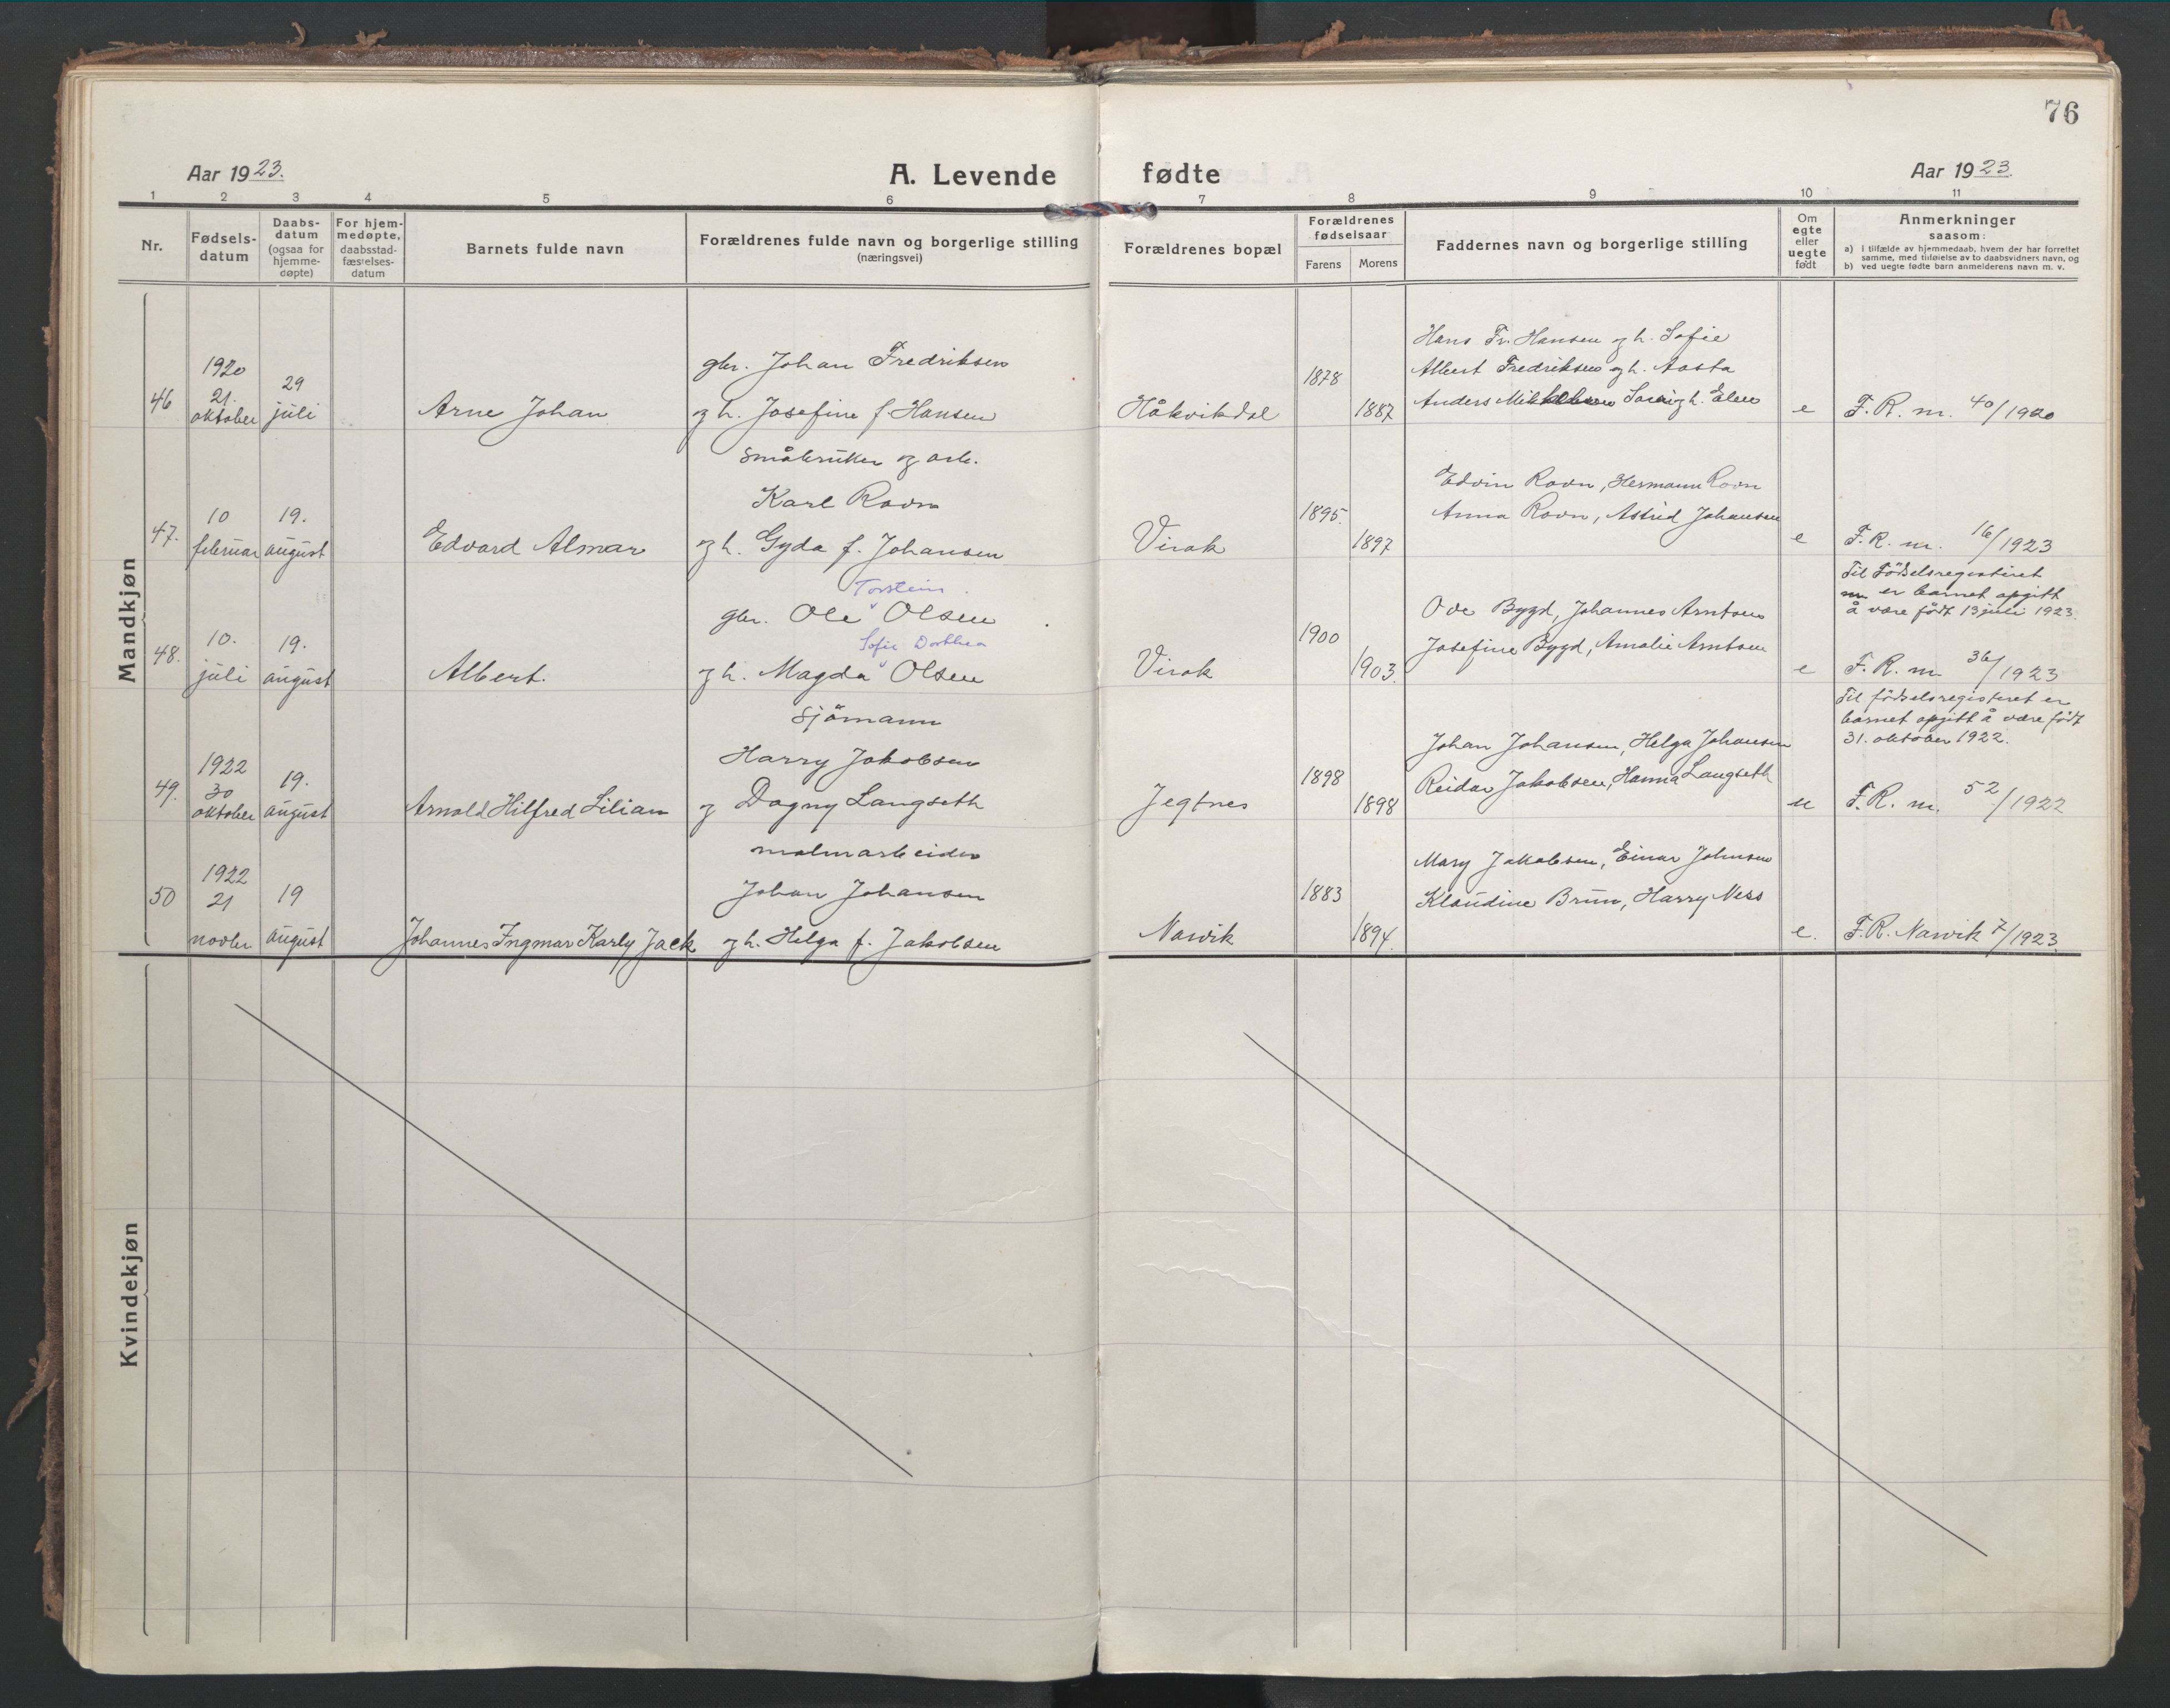 76
Aar 1923.
A. Levende fødte
Aar 1923.
1 2 3 4 5 6 7 8 9 10 11
Nr.
Fødsels-
datum
Daabs-
datum
(ogsaa for
hjemme-
døpte)
For hjem-
medøpte,
daabsstad-
fæstelses-
datum
Barnets fulde navn
Forældrenes fulde navn og borgerlige stilling
(næringsvei)
Forældrenes bopæl
Forældrenes
fødselsaar
Farens Morens
Faddernes navn og borgerlige stilling
Om
egte
eller
uegte
født
Anmerkninger
saasom:
a) i tilfælde av hjemmedaab, hvem der har forrettet
samme, med tilføielse av to daabsvidners navn, og
b) ved uegte fødte barn anmelderens navn m. v.
Mandkjøn
46
1920
21.
oktober
29
juli
Arne Johan
gbr. Johan Fredriksen
og h. Josefine f. Hansen
Håkvikdal
1878
1887
Hans Fr. Hansen og h. Sofie
Albert Fredriksen og h. Aasta
Anders og h. Elen
e
F. R. m. 40/1920
47.
10
februar
19.
august
Edvard Almar
småbruker og arb.
Karl Ravn
og h. Gyda f. Johansen
Virak
1895.
1897
Edvin Ravn, Hermann Ravn
Anna Ravn, Astrid Johansen
e
F. R. m. 16/1923
48.
10.
juli
19.
august
Albert.
Torstein
gbr. Ole Olsen
Sofie Dorthea
og h. Magda Olsen
Virak
1900
1903.
Ove Bygd, Johannes Arntsen
Josefine Bygd, Amalie Arntsen
e
Til Födselsregisteret
er barnet opgitt
å være født 13 juli 1923.
F. R. m. 36/1923
49.
1922
30
oktober
19.
august
Arnold Hilfred Lilian
Sjömann
Harry Jakobsen
og Dagny Langseth
Jegtnes
1898
1898
Johan Johansen, Helga Johansen
Reidar Jakobsen, Hanna Langseth
u
Til födselsregisteret er
barnet opgitt å være født
31. oktober 1922.
F. R. m. 52/1922
50
1922
21
novbr
19
august
Johannes Ingmar Karly Jack
malmarbeider
Johan Johansen
og h. Helga f. Jakobsen
Narvik
1883
1894.
Mary Jakobsen, Einar Johnsen
Klaudine Brun, Harry Ness
e.
F. R. Narvik 7/1923.
Kvindekjøn